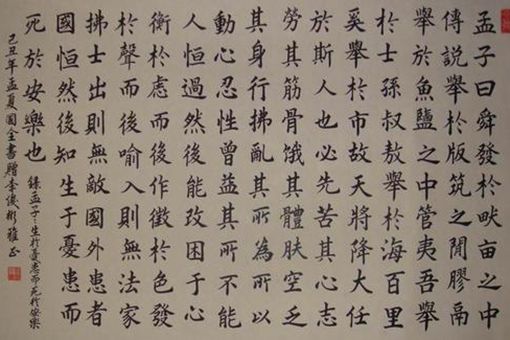 孟子曰舜發於畎亩之中
傳説舉於版筑之閒膠鬲
舉於魚鹽之中管夷吾舉
於士孫叔敖舉於海百里
奚舉於市故天將降大任
於斯人也必先苦其心志
勞其筋骨餓其體肤空乏
其身行拂亂其所為所以
動心忍性曾益其所不能
人恒過然後能改困于心
衡於慮而後作徵於色發
於聲而後喻入則無法家
拂士出則無敵國外患者
國恒然後知生于憂患而
死於安樂也
錄孟子生於憂患而死於安樂
己丑年孟夏國全書贈李俊彬雅正